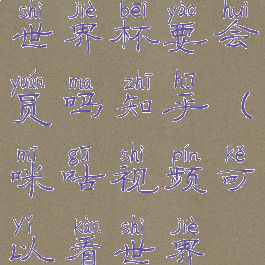 shì jiè bēi yào huì
世界杯要会
yuán ma zhī hū
员吗知乎(
mī gū shì pín kě
咪咕视频可
yǐ kàn shì jiè
以看世界